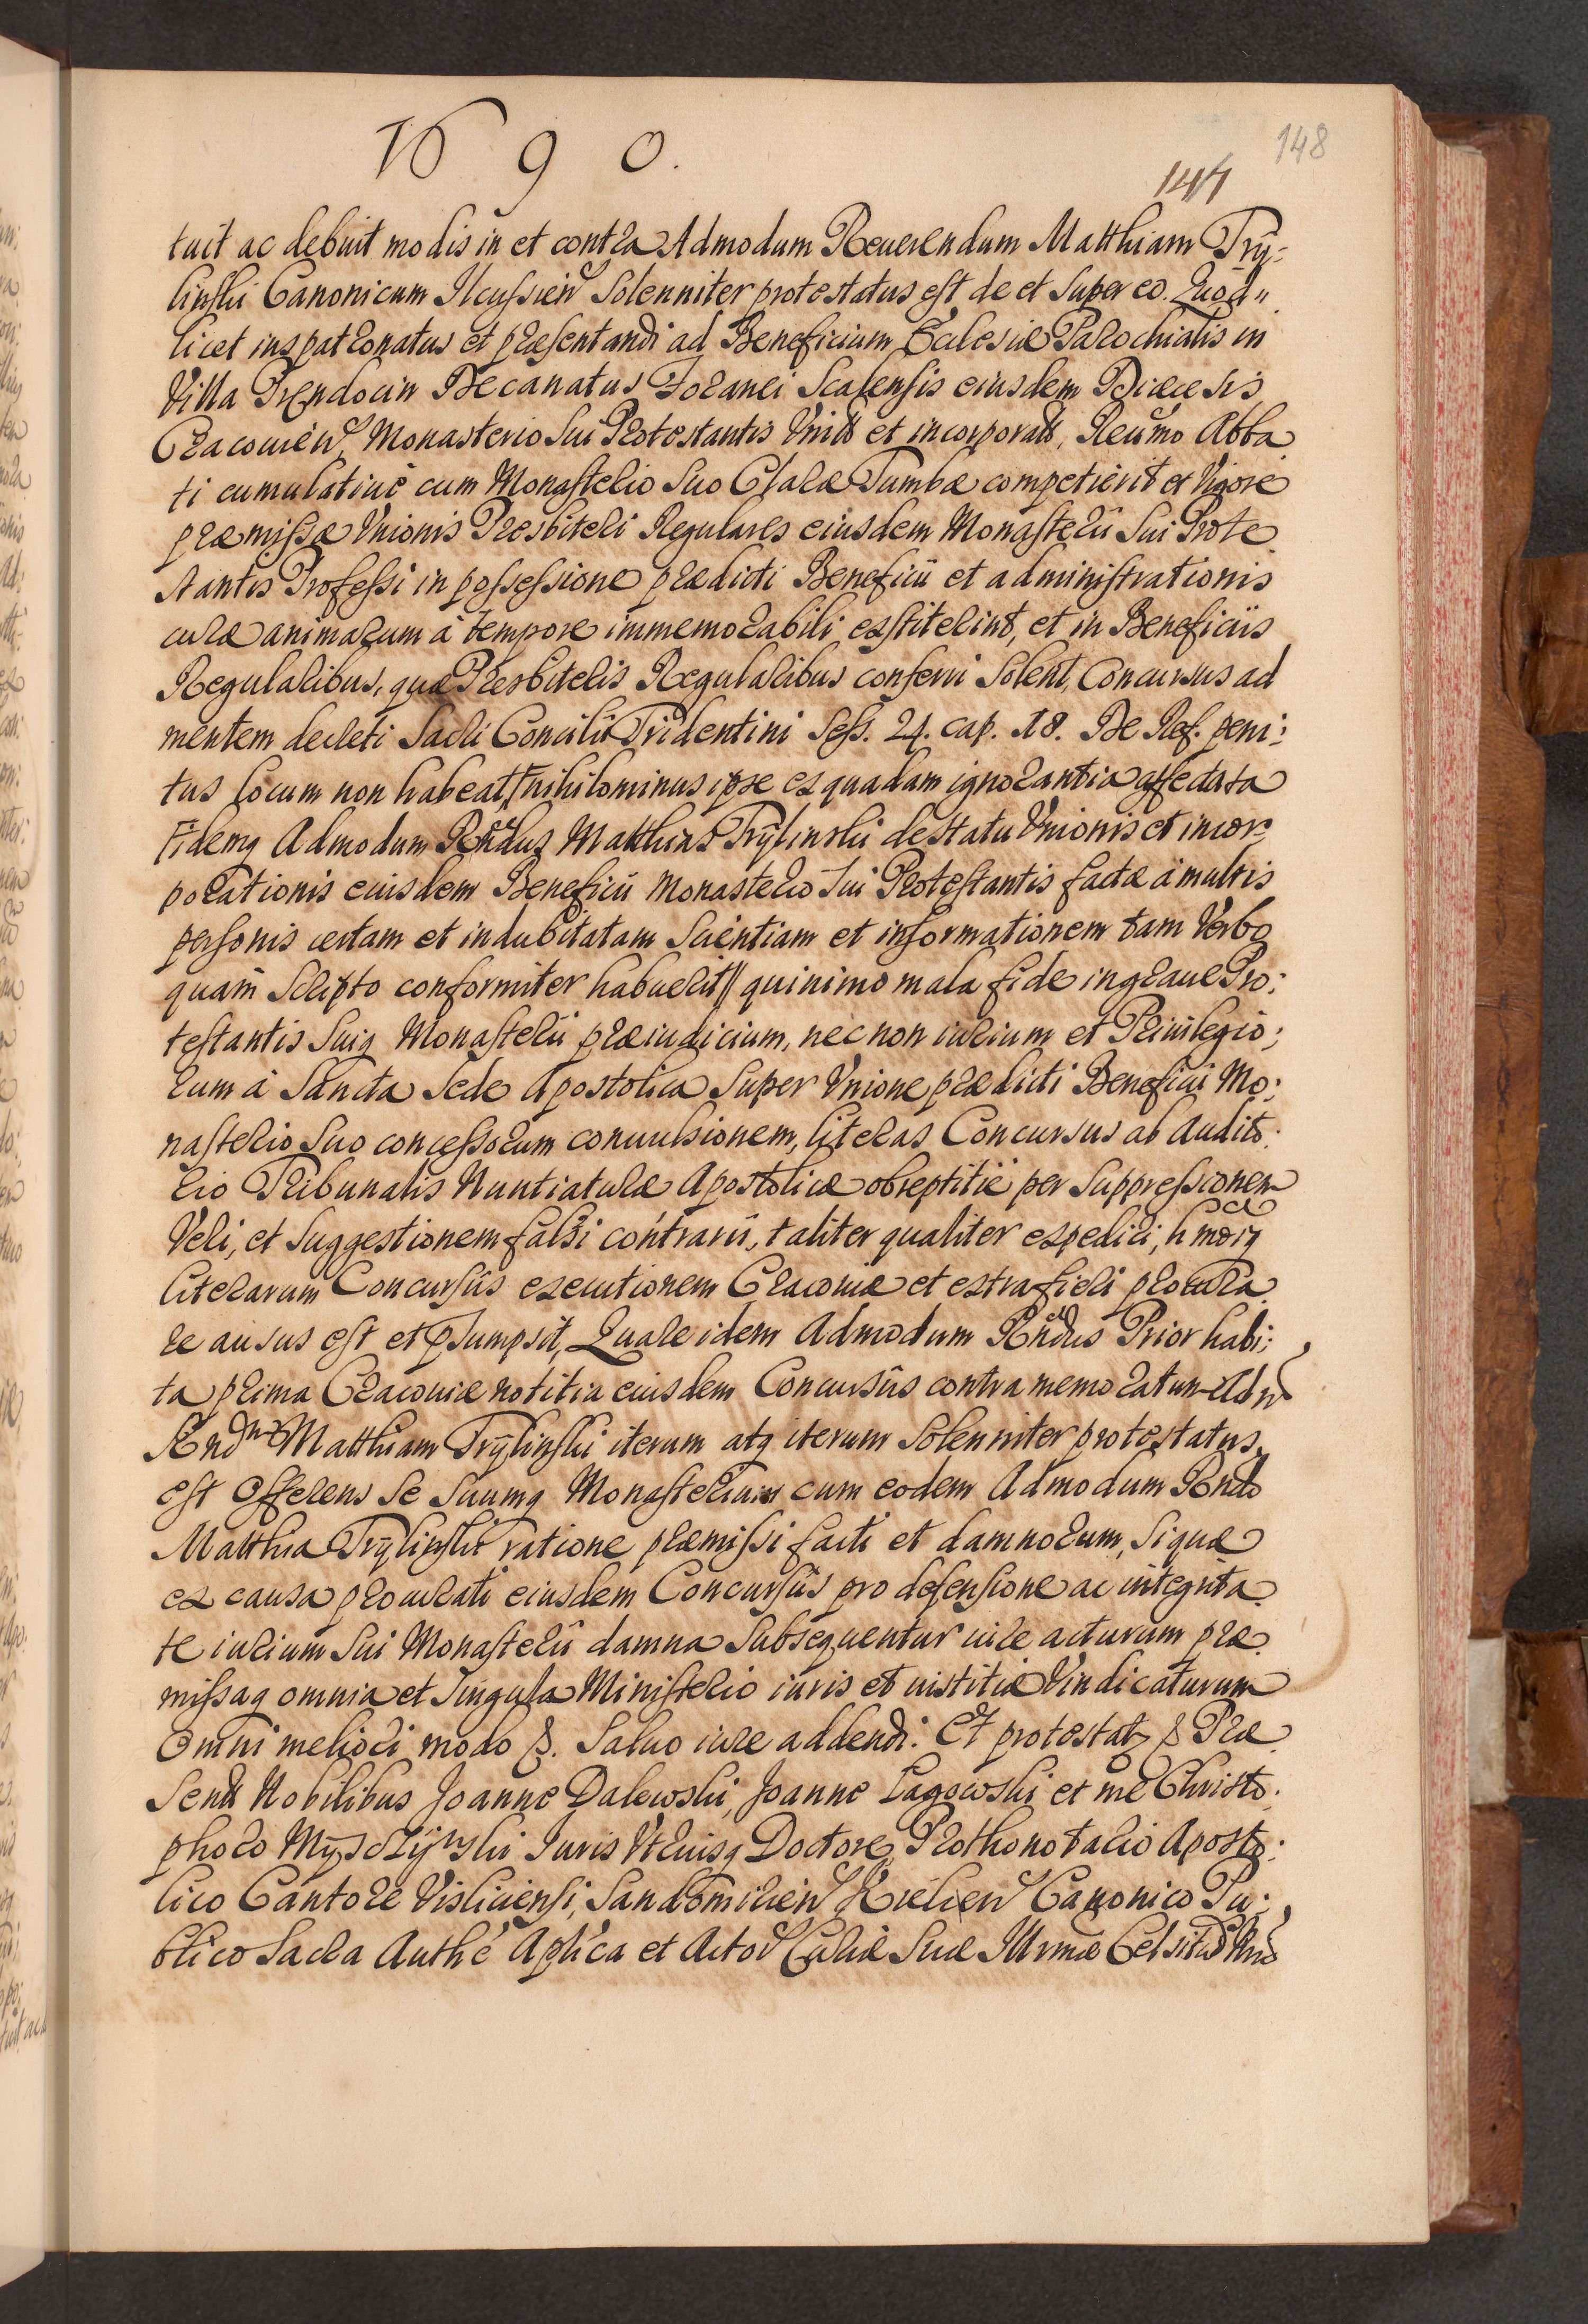 1690.
148
147
tuit ac debuit modis in et contra Admodum Reuerendum Matthiam Trÿ:
linski Canonicum Ilcussień Solenniter protestatus est de et Super eo. Quod
licet ius patronatus et præsentandi ad Beneficium Ecclesiæ Parochialis in
Villa Prendocin Decanatus Foranei Scalensis eiusdem Diæcesis
Cracouień, Monasterio Sui Protestantis et incorporat, Reumo Abba
ti cumulatiuè cum Monasterio Suo Claræ Tumbæ competierit et Vigore
præmissæ Vnionis Presbiteri Regulares eiusdem Monasterii Sui Prote
stantis Professi in possessione prædicti Beneficii et administrationis
curæ animarum à tempore immemorabili exstiterint, et in Beneficiis
Regularibus, quæ Presbiteris Regularibus conferri Solent, Concursus ad
mentem decreti Sacri Concilii Tridentini Sess. 24. cap. 18. De Ref. peni:
tus locum non habeat, nihilominus ipse ex quadam ignorantia affectata
idemq Admodum Rndus Matthias Trÿlinski de statu Vnionis et incor
porationis eiusdem Beneficii Monasterio Sui Protestantis factæ à multis
personis certam et indubitatam Scientiam et informationem tam Verbo
quàm Scripto conformiter habuerit quinimo mala fide in graue Pro:
testantis Suiq Monasterii præiudicium, nec non iurium et Priuilegio:
rum à Sancta Sede Apostolica Super Vnione prædicti Beneficii Mo:
nasterio Suo concessorum conuulsionem, literas Concursus ab Audito:
rio Tribunalis Nuntiaturæ Apostolicæ obreptitiè per Suppressionem
Veri, et Suggestionem falsi contrarii, taliter qualiter expediri, hmoiq
literarum Concursûs executionem Cracouiæ et extra fieri procura
re ausus est et psumpsit, Quare idem Admodum Rndus Prior habi:
ta prima Cracouiæ notitia eiusdem Concursûs contra memoratum Adm
Rndm Matthiam Trÿlinski iterum atq iterum Solenniter protestatus
est Offerens Se Suumq Monasterium cum eodem Admodum Rndo
Matthia Trÿlinski ratione præmissi facti et damnorum, Si quæ
ex causa procurati eiusdem Concursûs pro defensione ac integrita
te iurium Sui Monasterii damna Subsequentur iure acturum præ
missaq omnia et Singula Ministerio iuris et iustitiæ Vindicaturum
Omni meliori modo &. Saluo iure addendi. Et protestat & Præ
sent Nobilibus Joanne Dalewski, Joanne Lagowski et me Christo:
phoro Mÿsczÿnski Iuris Vtriusq Doctore, Prothonotario Aposto:
lico Cantore Visliciensi, Sandomirień Kielceń Canonico Pu:
blico Sacra Authè Aplica et Actor Curiæ Suæ Illrmæ Celsitud